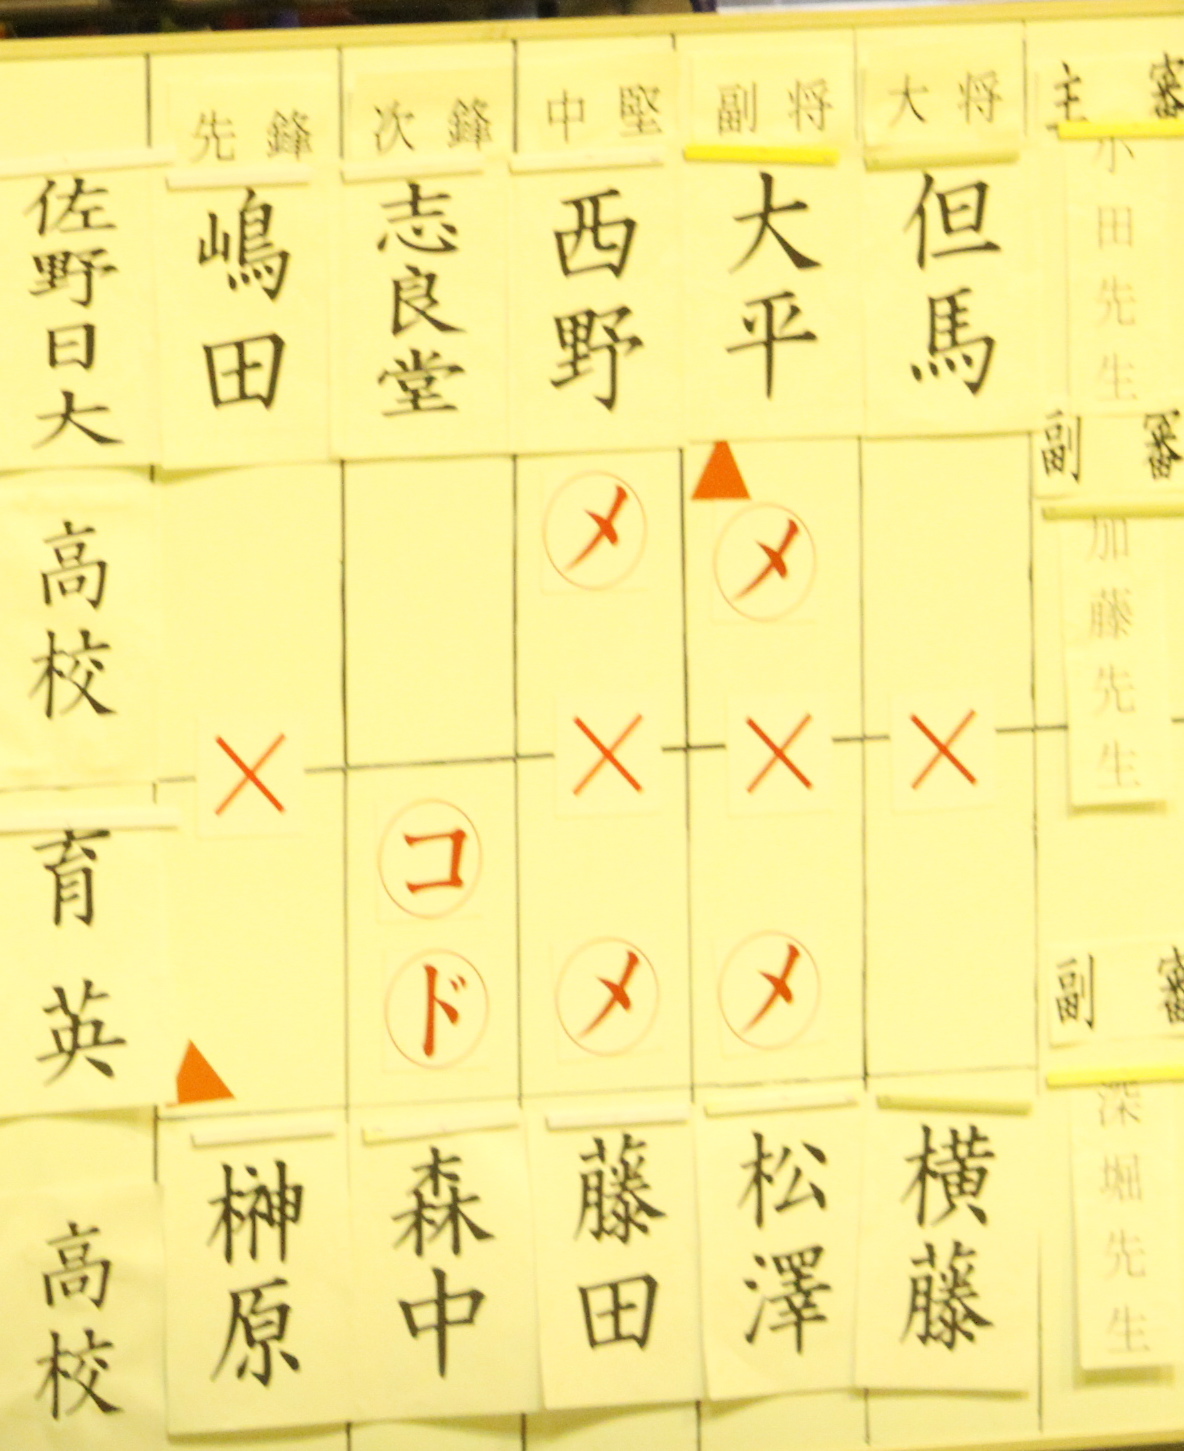 先鋒
次鋒
中堅
副将
大将
主審
佐野日大
高校
嶋田
志良堂
西野
大平
但馬
小田先生
副審
加藤先生
メ
メ
×
×
×
×
コ
ド
メ
メ
育英
高校
榊原
森中
藤田
松澤
横藤
副審
深堀先生